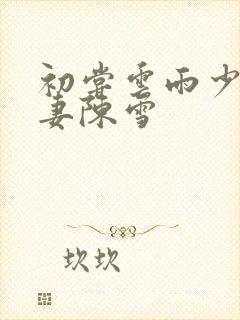 初尝雲雨少
妻陳雪
坎坎